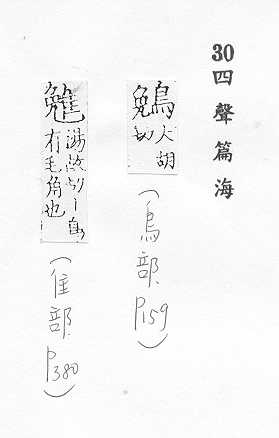 30四聲篇海
鵵 胡切
(鳥部 P159)
湯故切｜鳥有毛角也
(隹部 P380)